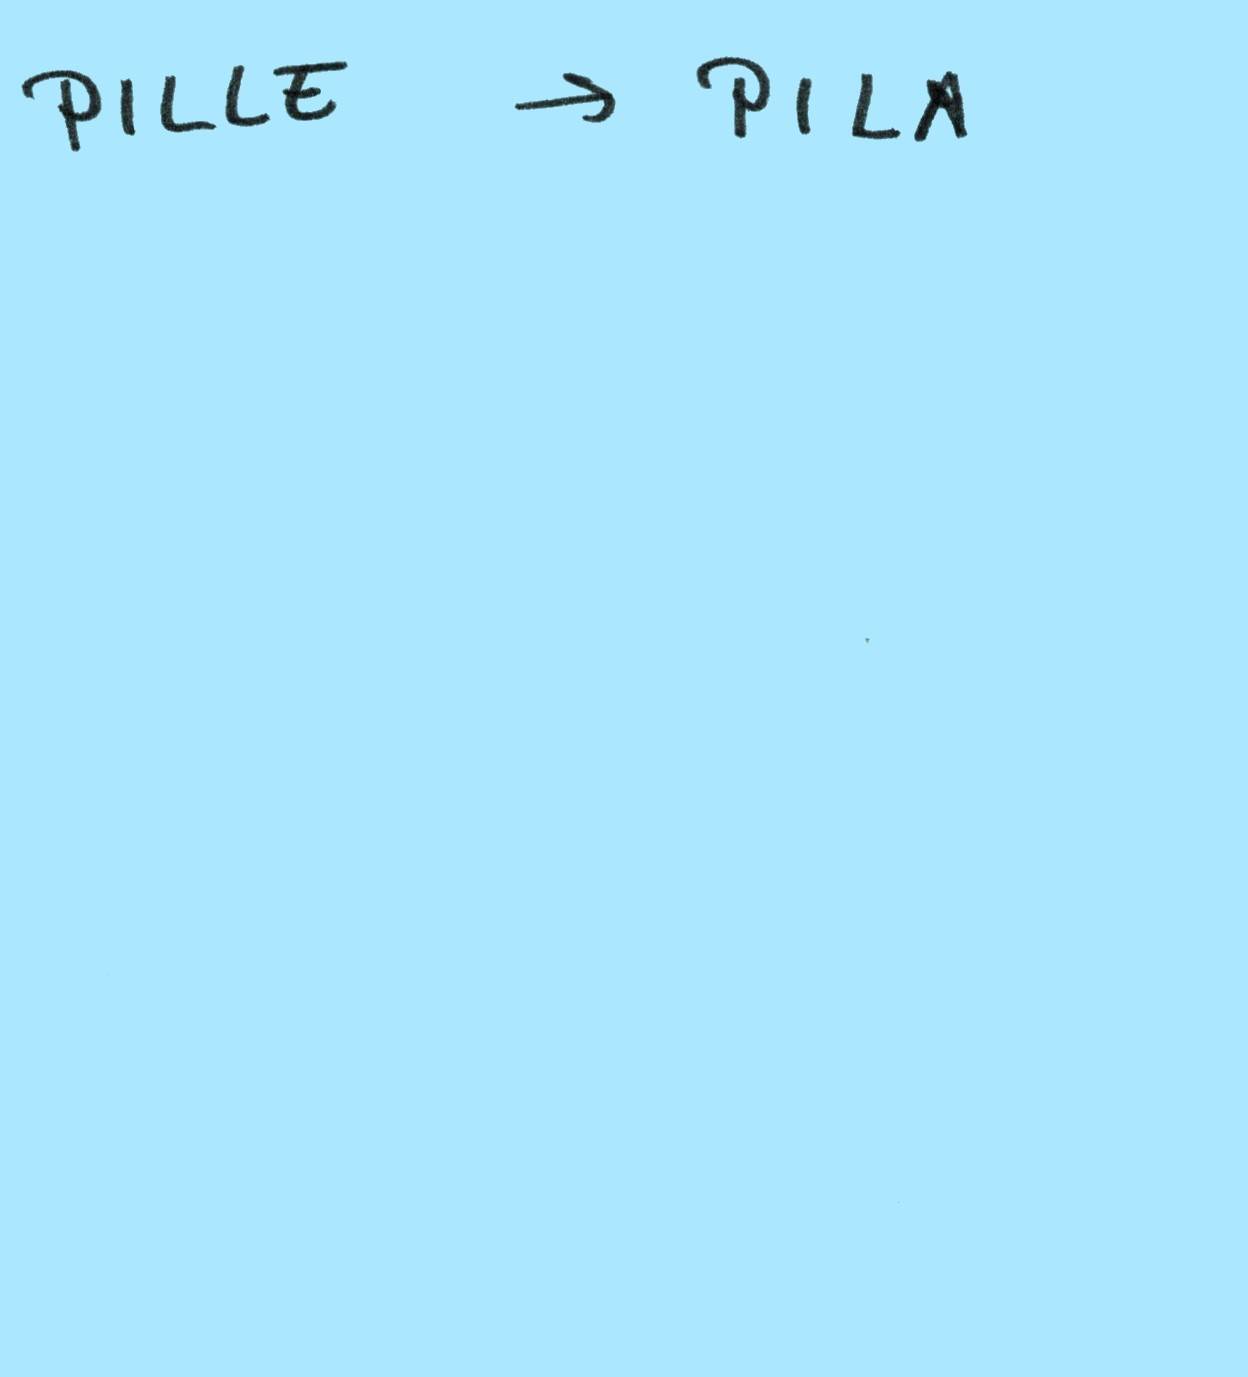 PILLE → PILA